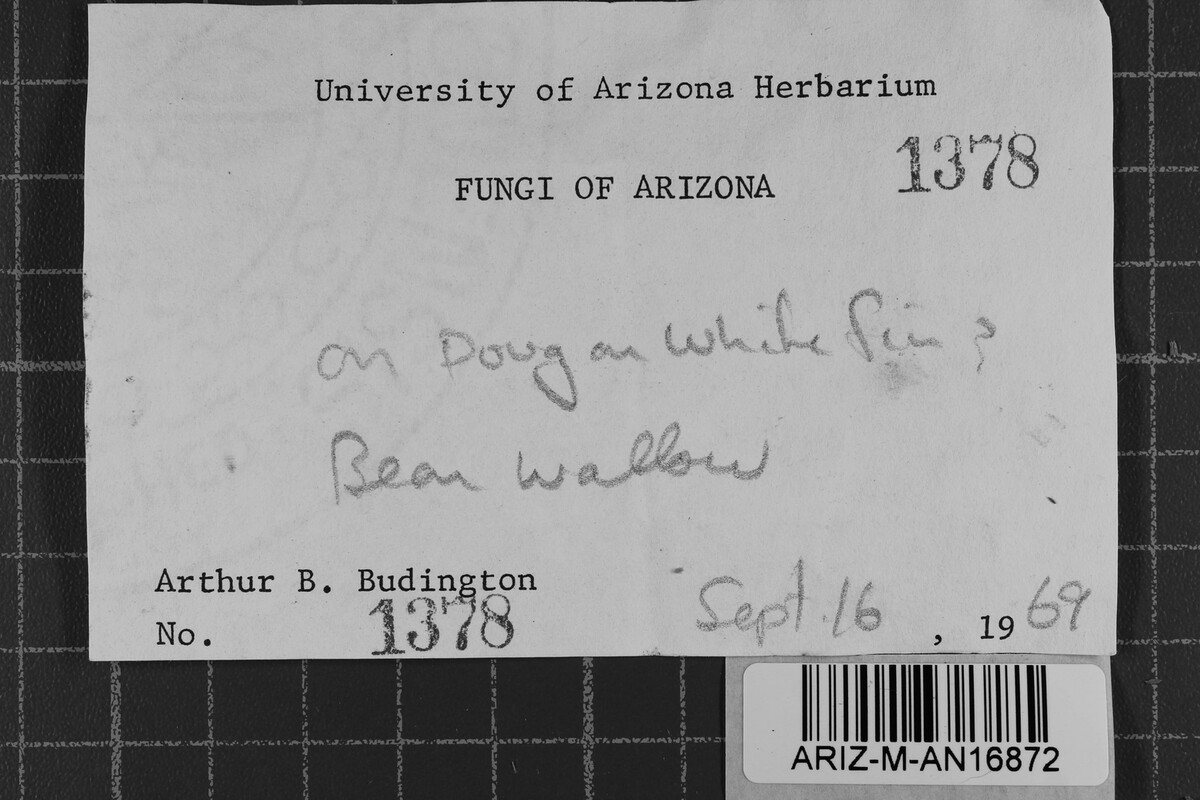 University of Arizona Herbarium
1378
FUNGI OF ARIZONA
on Doug or White Fir ?
Bear Wallow
Arthur B. Budington
No. 1378
Sept. 16, 1969
ARIZ-M-AN16872